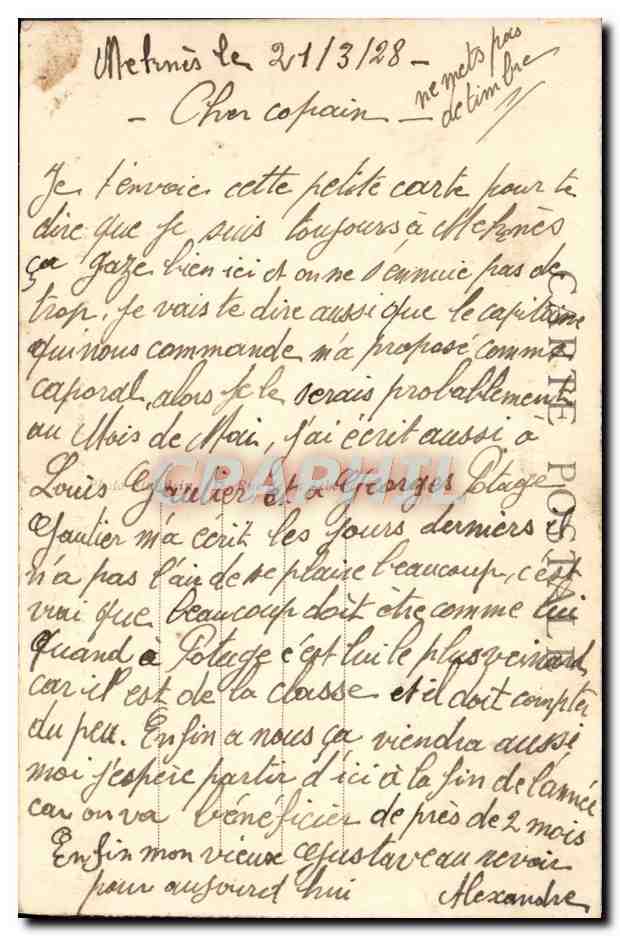 Meknès le 21/3/28 -
ne mets pas
de timbre
- Cher copain -
Je t'envoie cette petite carte pour te
dire que je suis toujours à Meknès
ça gaze bien ici et on ne s'ennuie pas de
trop, je vais te dire aussi que le capitaine
qui nous commande m'a proposé comme
caporal, alors je le serais probablement
au Mois de Mai, j'ai écrit aussi à
Louis Gautier et a Georges Potage
Gautier m'a écrit les jours derniers il
n'a pas l'air de se plaire beaucoup, c'est
vrai que beaucoup doit être comme lui
quand à Potage c'est lui le plus veinard
car il est de la classe et il doit compter
du peu. Enfin a nous ça viendra aussi
moi j'espère partir d'ici à la fin de l'année
car on va bénéficier de près de 2 mois
Enfin mon vieux Gustave au revoir
pour aujourd hui Alexandre
CARTE POSTALE
CPAPHIL